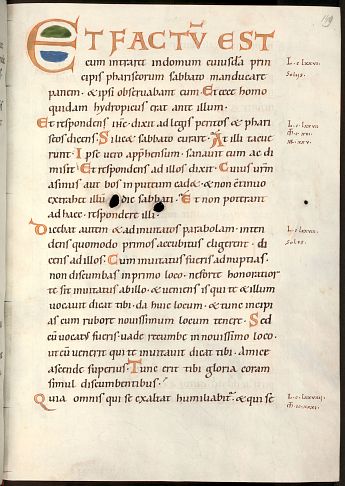 ET FACTŪ EST
cum intraret in domum cuiusdā prin
cipis phariseorum sabbato manducare
panem · & ipsi observabant eum · Et ecce homo
quidam hydropicus erat ante illum ·
Et respondens ihc̄ · dixit ad legis peritos & phari
seos dicens · Si lic& sabbato curare · At illi tacue
runt · Ipse vero apphensum · sanavit eum ac di
misit · Et respondens ad illos dixit · Cuius urm̄
asinus aut bos in puteum cad& · & non ctinuo
extrahet illū die sabbati · Et non poterant
ad haec · respondere illi ·
Dicebat autem & ad invitatos parabolam · inten
dens quomodo primos accubitus eligerent · di
cens ad illos · Cum invitatus fueris ad nuptias ·
non discumbas in primo loco · ne forte honoratior
te sit invitatus ab illo · & veniens is qui te & illum
vocavit dicat tibi · da huic locum · & tunc incipi
as cum rubore novissimum locum tenere · Sed
cū vocatus fueris · vade recumbe in novissimo loco ·
ut cū venerit qui te invitavit dicat tibi · amice
ascende superius · Tunc erit tibi gloria coram
simul discumbentibus ·
Quia omnis qui se exaltat humiliabit̄ · & qui se